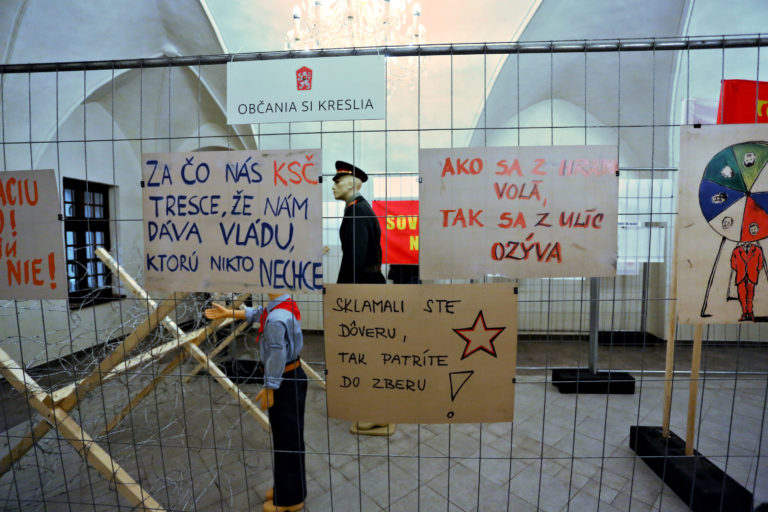 OBČANIA SI KRESLIA
ACIU
O!
NIE!
ZA ČO NÁS KSČ
TRESCE, ŽE NÁM
DÁVA VLÁDU,
KTORÚ NIKTO NECHCE
AKO SA Z HRADU
VOLÁ,
TAK SA Z ULÍC
OZÝVA
SOV
N
SKLAMALI STE
DÔVERU,
TAK PATRÍTE
DO ZBERU !